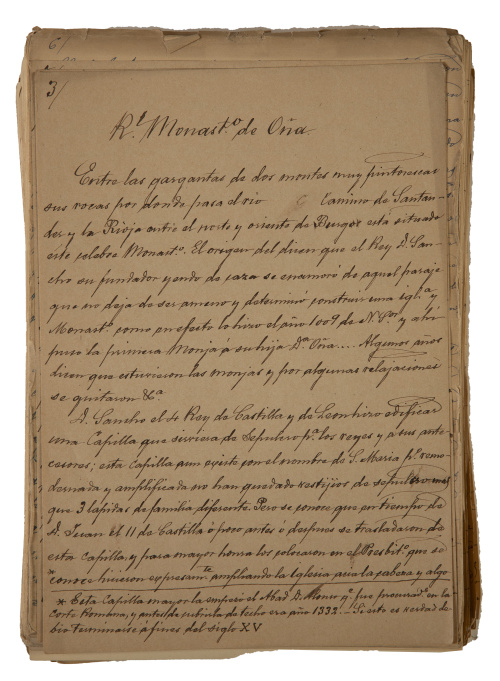 6/
3/
Rl. Monast.o de Oña.
Entre las gargantas de dos montes muy pintorescas
sus rocas por donde pasa el rio Camino de Santan-
der y la Rioja entre el norte y oriente de Burgos está situado
este celebre Monast.o. El origen del dicen que el Rey D. San-
cho su fundador yendo de caza se enamoró de aquel paraje
que no deja de ser ameno y determinó construir una igl.a y
Monast.o como en efecto lo hizo el año 1009 de N. y ahi
puso la primera Monja á su hija D.a Oña.... Algunos años
dicen que estuvieron las monjas y por algunas relajaciones
se quitaron &.a
D. Sancho el Rey de Castilla y de Leon hizo edificar
una Capilla que sirviera de Sepulcro p.a los reyes y a sus ante-
cesores; esta Capilla aun existe con el nombre de S. Maria p.o remo-
dernada y amplificada no han quedado vestijios de sepulcro mas
que 3 lapidas de familia diferente. Pero se conoce que en tiempo de
D. Juan el II de Castilla ó poco antes ó despues se trasladaron de
esta capilla y para mayor honra los colocaron en el Presbit.o que se
conoce hicieron expresam.te ampliando la Iglesia acia la cabeza y algo
* Esta Capilla mayor la empezó el Abad D. Alonso q.e fue procurad.r en la
Corte Romana, y antes de cubrirla de techo era año 1332. — Si esto es verdad de-
bió terminarse á fines del siglo XV